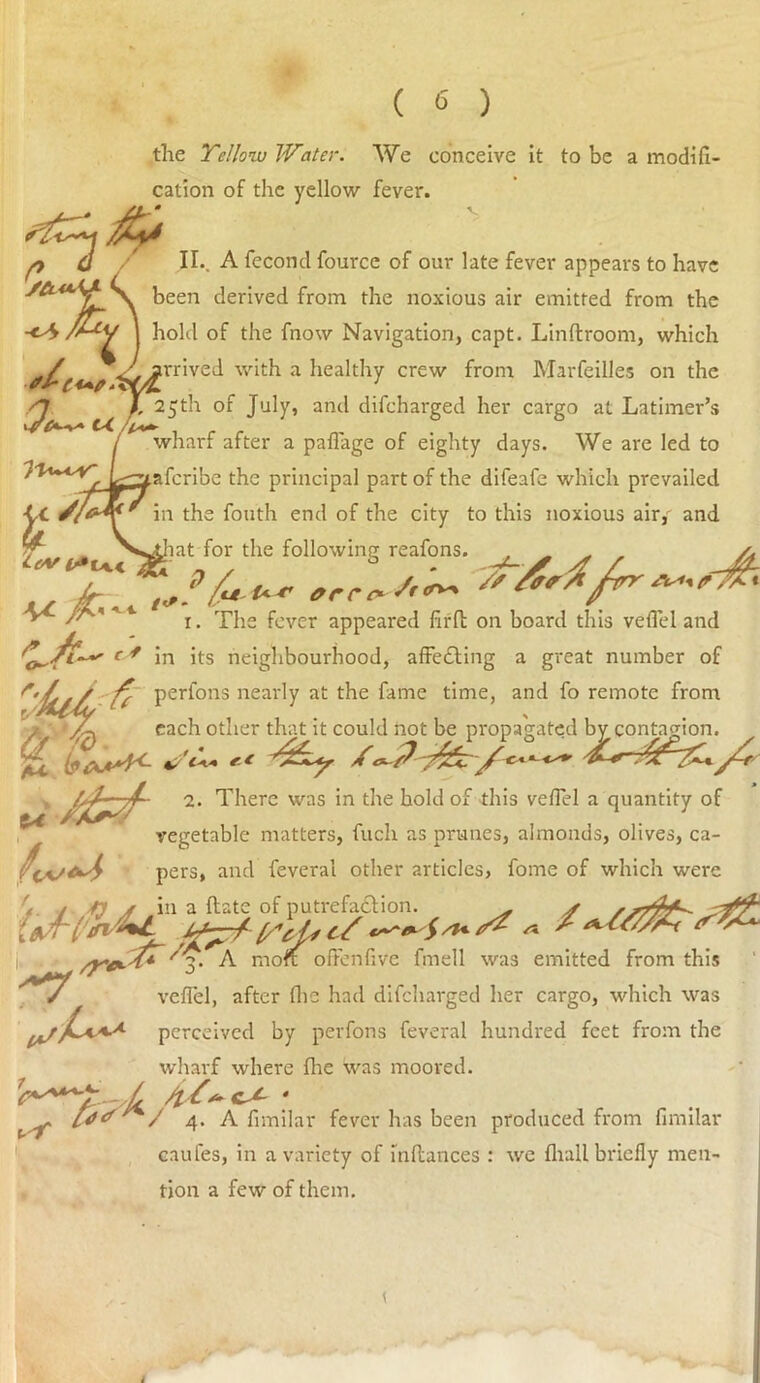 ( 6 )
the Yellow Water. We conceive it to be a modifi-
cation of the yellow fever.
II. A ſecond ſource of our late fever appears to have
been derived from the noxious air emitted from the
hold of the ſnow Navigation, capt. Linſtroom, which
arrived with a healthy crew from Marſeilles on the
25th of July, and diſcharged her cargo at Latimer's
wharf after a paſſage of eighty days. We are led to
aſcribe the principal part of the diſeaſe which prevailed
in the ſouth end of the city to this noxious air, and
that for the following reaſons.
1. The fever appeared firſt on board this veſſel and
in its neighbourhood, affecting a great number of
perſons nearly at the ſame time, and ſo remote from
each other that it could not be propagated by contagion.
2. There was in the hold of this veſſel a quantity of
vegetable matters, ſuch as prunes, almonds, olives, ca-
pers, and ſeveral other articles, ſome of which were
in a ſtate of putrefaction.
3. A moſt offenſive ſmell was emitted from this
veſſel, after ſhe had diſcharged her cargo, which was
perceived by perſons ſeveral hundred feet from the
wharf where ſhe was moored.
4. A ſimilar fever has been produced from ſimilar
cauſes, in a variety of inſtances : we ſhall briefly men-
tion a few of them.
this
Cause
as they
be no occasion to look for anothe
likely to
the Cause since they had the fever both
that
was
that Vessel was not at all the othe
my rate
where
took place.